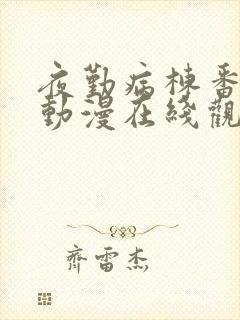 夜勤病棟番
動漫在綫觀
齊雷杰